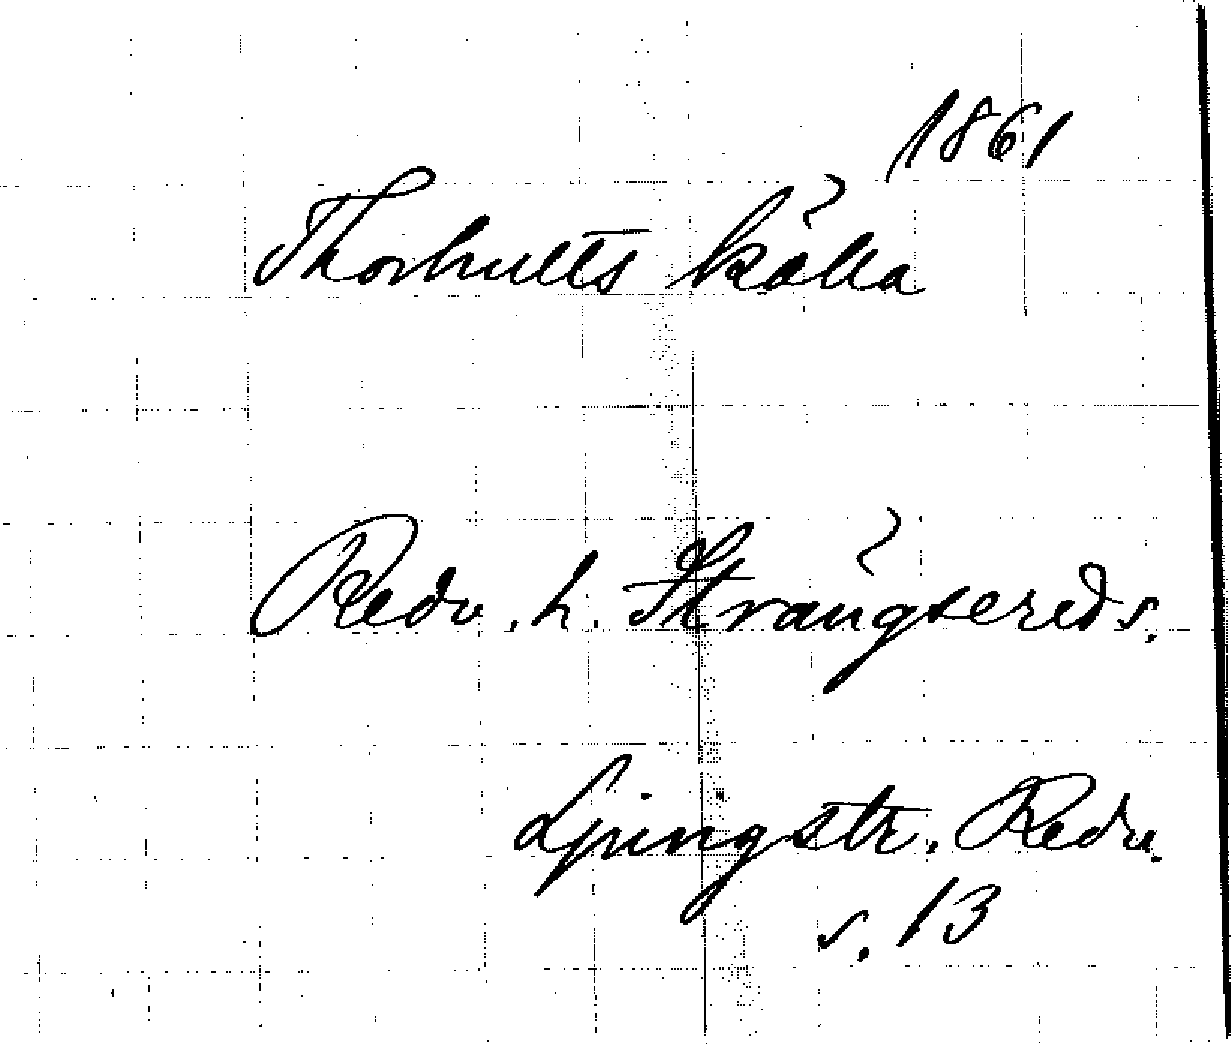 1861
Thorhults källa
Redv. h. Strängsereds s.
Ljungstr. Redv.
s. 13